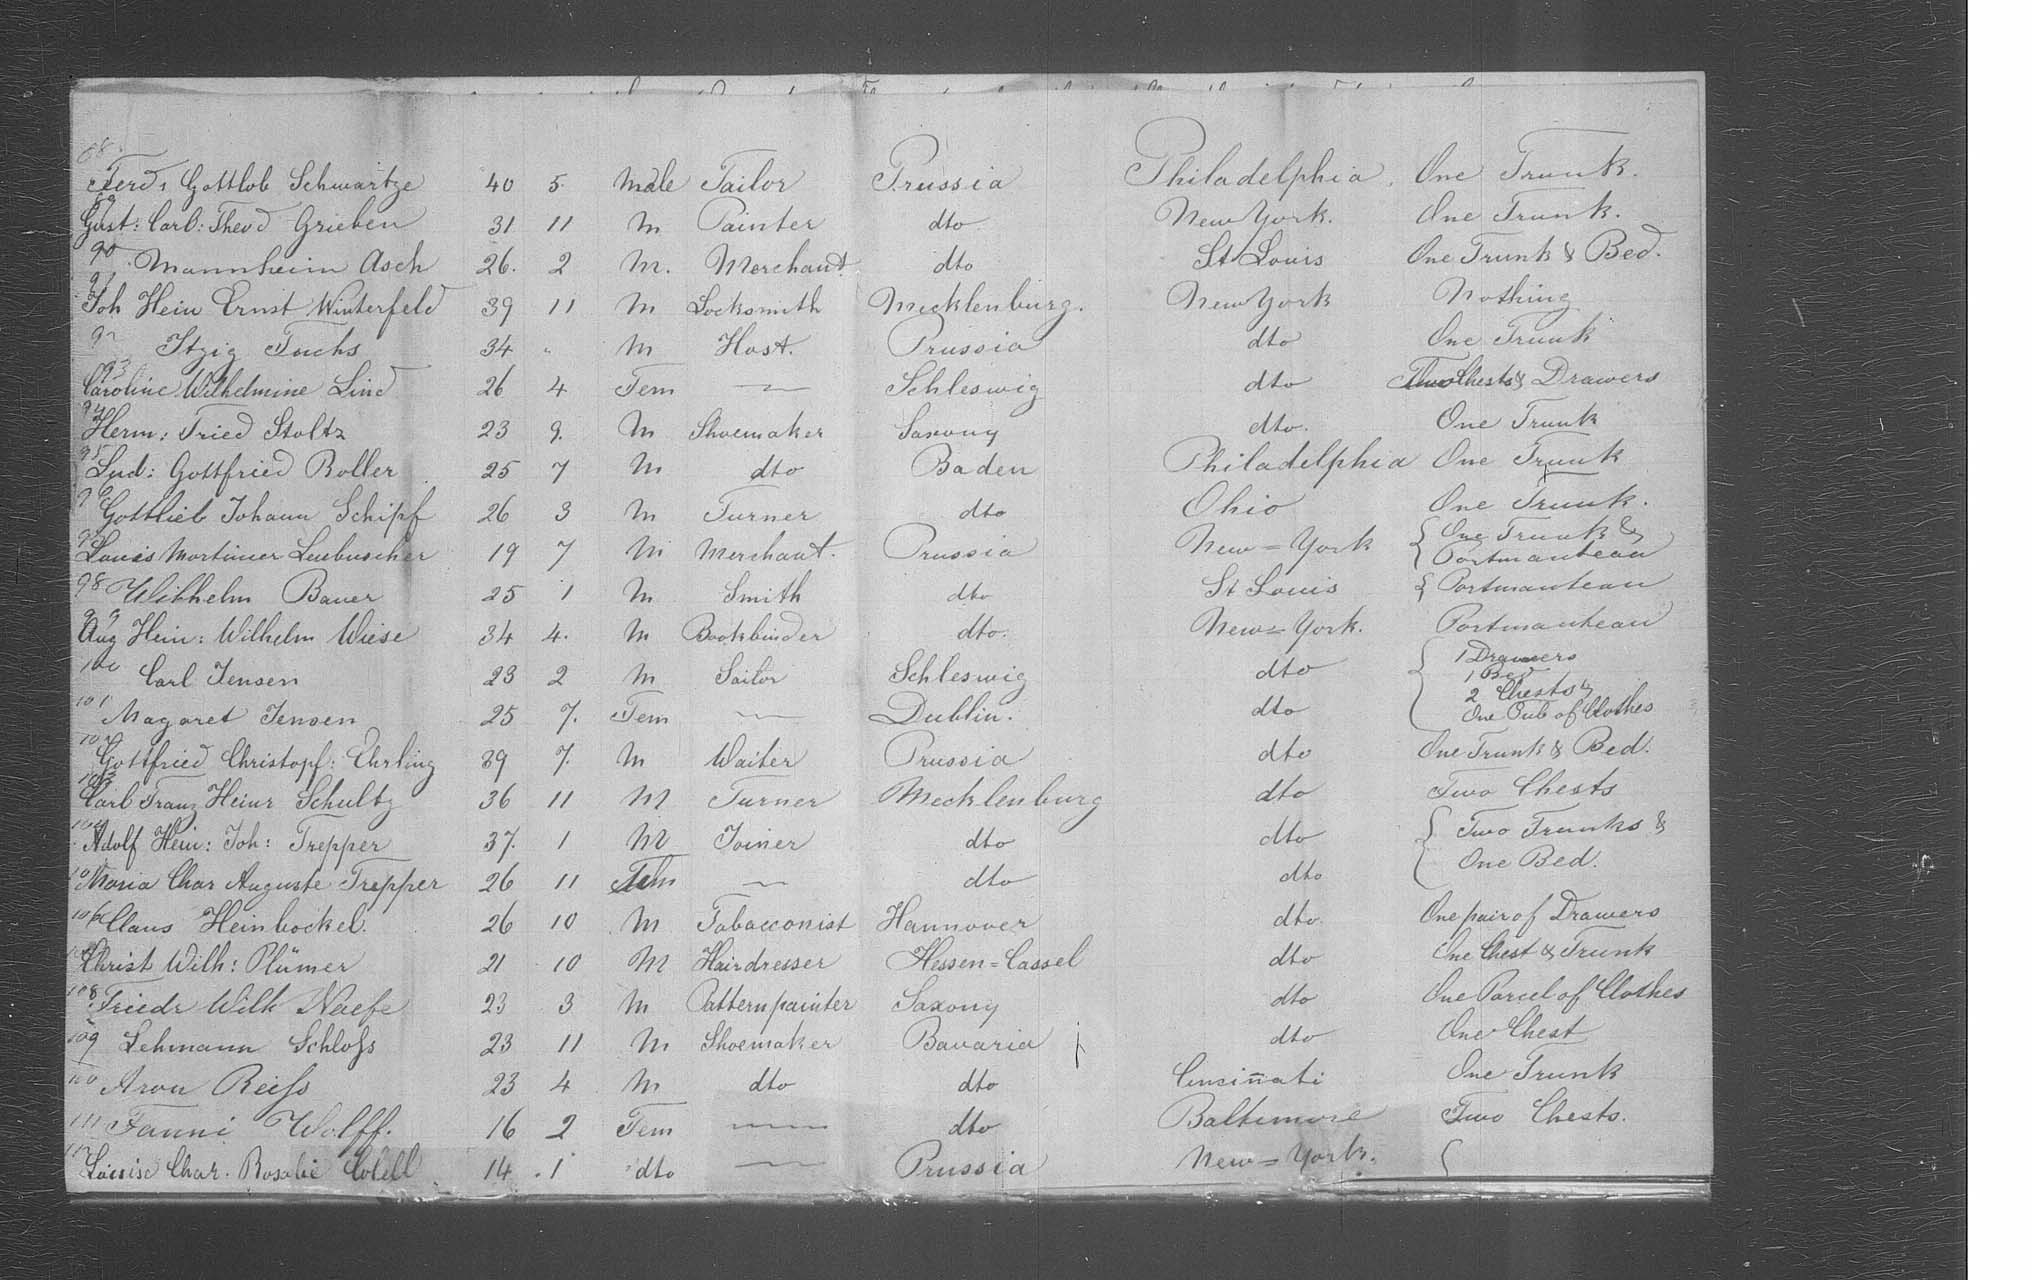 88. Ferd: Gottlob Schwartze 40 5. Male Tailor Prussia Philadelphia. One Trunk.
89 Gust: Carl: Theod Grieben 31 11 M Painter dto New York. One Trunk.
90 Mannheim Asch 26. 2 M. Merchant dto St Louis One Trunk & Bed.
91 Joh Hein Ernst Winterfeld 39 11 M Locksmith Mecklenburg. New York Nothing
92 Itzig Fuchs 34 " M Host. Prussia dto One Trunk
93 Caroline Wilhelmine Lind 26 4 Fem — Schleswig dto Two Chests & Drawers
94 Herm: Fried Stoltz 23 9. M Shoemaker Saxony dto. One Trunk
95 Lud: Gottfried Boller 25 7 M dto Baden Philadelphia One Trunk
96 Gottlieb Johann Schipf 26 3 M Turner dto Ohio One Trunk.
97 Louis Mortimer Leubuscher 19 7 M Merchant. Prussia New=York { One Trunk &
Portmanteau
98 Wilhelm Bauer 25 1 M Smith dto St Louis { Portmanteau
99 Aug Hein: Wilhelm Wiese 34 4. M Bookbinder dto. New=York. Portmanteau
100 Carl Jensen 23 2 M Sailor Schleswig dto { 1 Drawers
1 Bed
2 Chests &
101 Magaret Jensen 25 7. Fem — Dublin. dto One of Clothes
102 Gottfried Christopf: Ehrling 39 7. M Waiter Prussia dto One Trunk & Bed.
103 Carl Franz Heinr Schultz 36 11 M Turner Mecklenburg dto Two Chests
104 Adolf Hein: Joh: Trepper 37. 1 M Joiner dto dto { Two Trunks &
105 Maria Char Auguste Trepper 26 11 Fem — dto dto One Bed.
106 Claus Heinbockel. 26 10 M Tobacconist Hannover dto. One pair of Drawers
107 Christ Wilh: Plümer 21 10 M Hairdresser Hessen=Cassel dto One Chest & Trunk
108. Friedr Wilh Naefe 23 3 M Patternpainter Saxony dto One Parcel of Clothes
109 Lehmann Schloss 23 11 M Shoemaker Bavaria dto One Chest
110 Aron Reiss 23 4 M dto dto Cincinnati One Trunk
111 Fanni Wolff. 16 2 Fem — dto Baltimore Two Chests.
112 Louise Char. Rosalie 14 1 dto — Prussia New=York. {